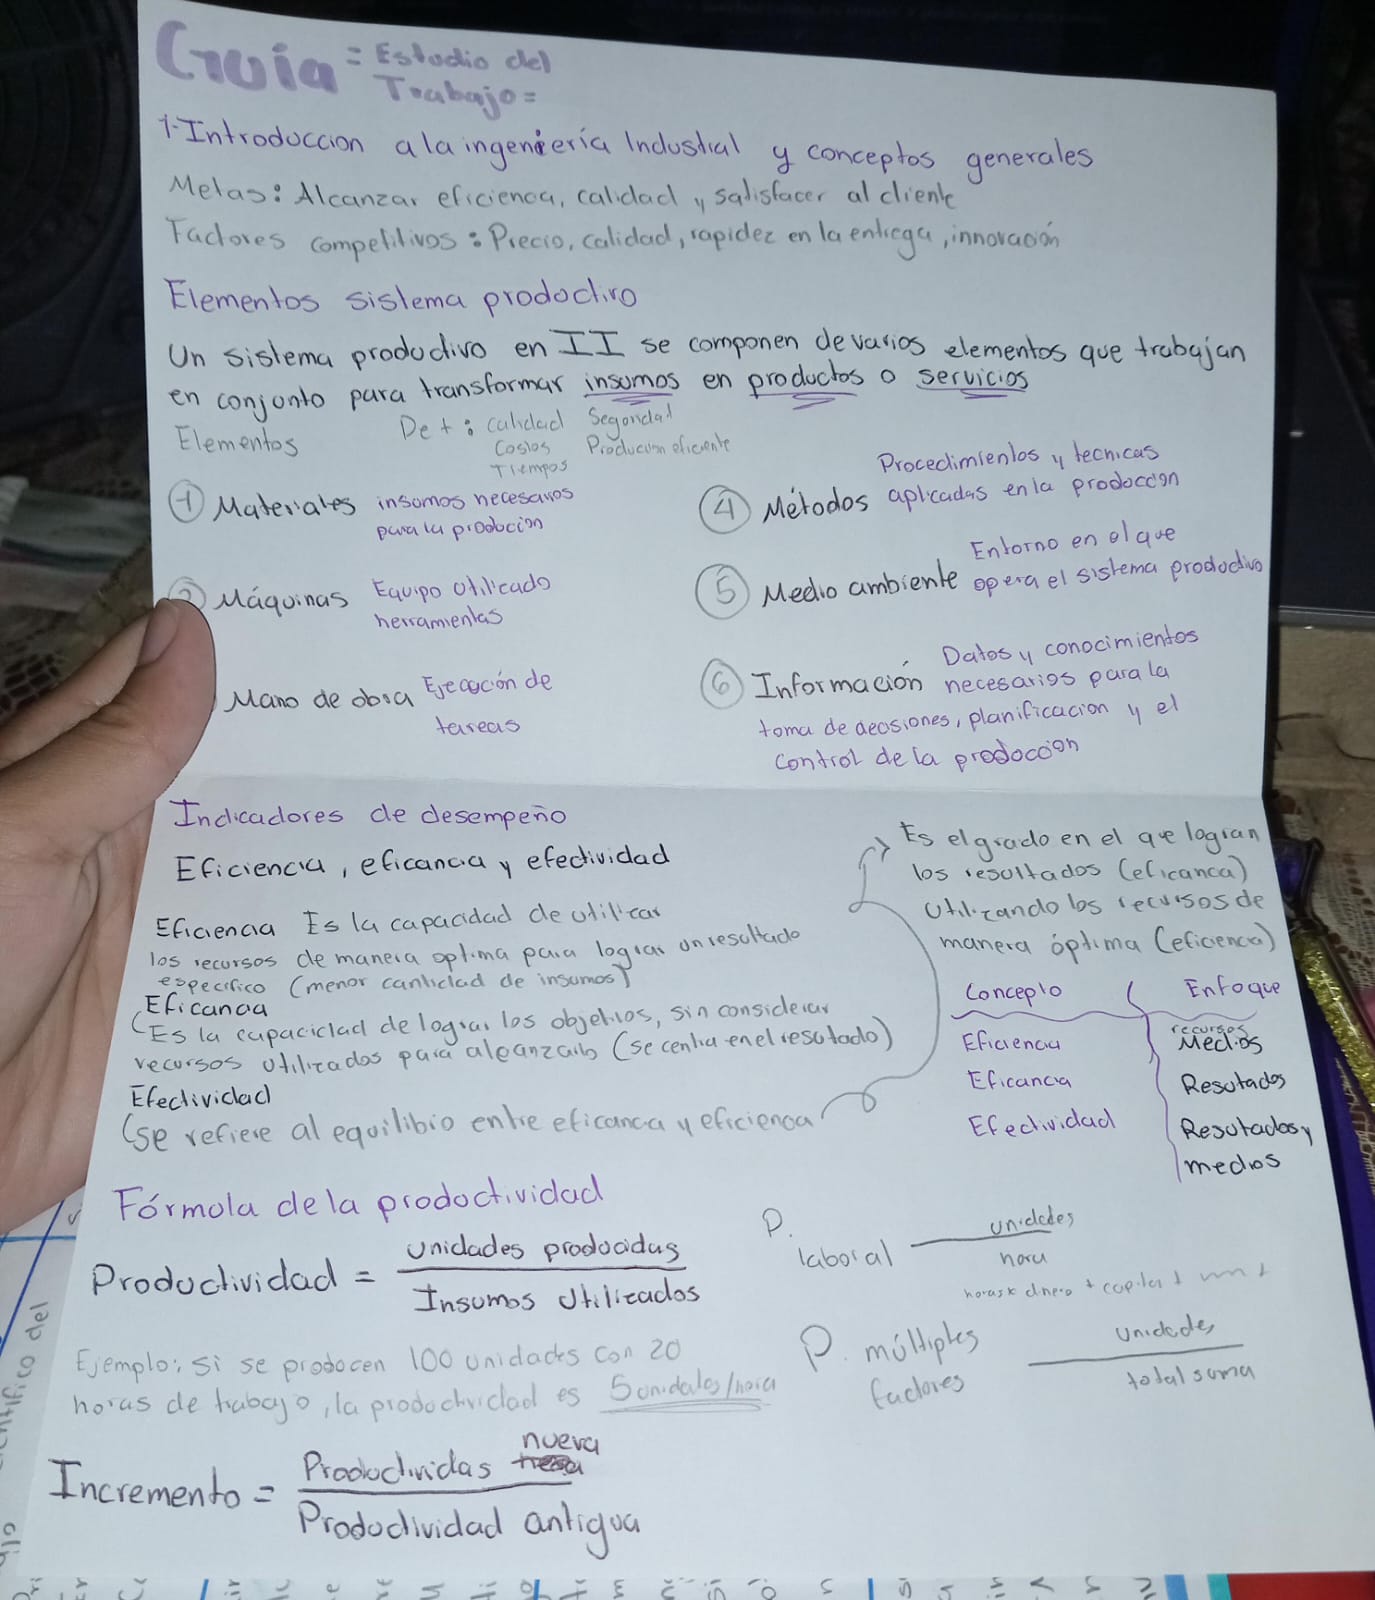 Guía = Estudio del
Trabajo =
1- Introduccion a la ingeniería Industrial y conceptos generales
Metas: Alcanzar eficiencia, calidad y satisfacer al cliente
Factores competitivos: Precio, calidad, rapidez en la entrega, innovación
Elementos sistema productivo
Un sistema productivo en II se componen de varios elementos que trabajan
en conjunto para transformar insumos en productos o servicios
Elementos
Det: calidad Seguridad
Costos Produccion eficiente
Tiempos
1 Materiales insumos necesarios
para la produccion
Máquinas Equipo utilizado
herramientas
Mano de obra Ejecución de
tareas
Procedimientos y tecnicas
4 Métodos aplicadas en la produccion
Entorno en el que
5 Medio ambiente opera el sistema productivo
Datos y conocimientos
6 Información necesarios para la
toma de decisiones, planificacion y el
control de la produccion
Indicadores de desempeño
Eficiencia, eficancia y efectividad
Eficiencia Es la capacidad de utilizar
los recursos de manera optima para lograr un resultado
especifico (menor cantidad de insumos)
Eficancia
(Es la capacidad de lograr los objetivos, sin considerar
recursos utilizados para alcanzarlo (se centra en el resutado)
Efectividad
(se refiere al equilibio entre eficancia y eficiencia
Es el grado en el que logran
los resultados (eficanca)
utilizando los recursos de
manera óptima (eficiencia)
Concepto Enfoque
Eficiencia recursos
Medios
Eficancia Resutados
Efectividad Resutados y
medios
Fórmula de la productividad
Productividad = unidades producidas
Insumos utilizados
Ejemplo: si se producen 100 unidades con 20
horas de trabajo, la productividad es 5 unidades/hora
Incremento = Productividas nueva
Productividad antigua
P. laboral unidades
hora
horas x dinero + capital +
P. múltiples factores unidades
total suma